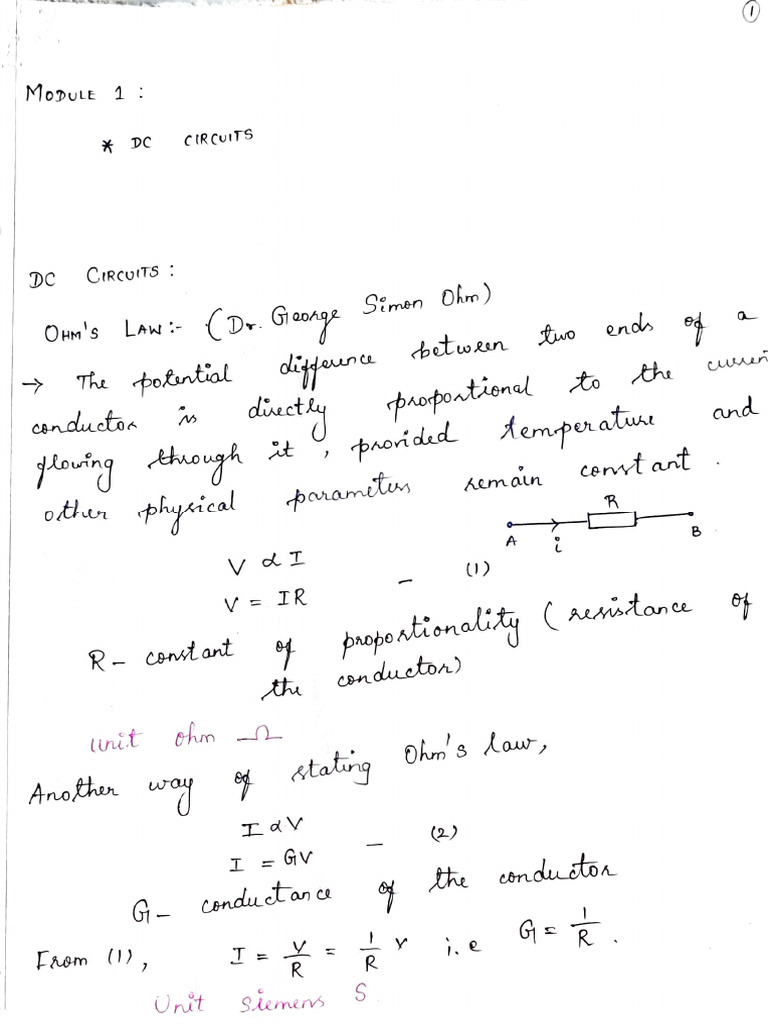 1
MODULE 1 :
* DC CIRCUITS
DC CIRCUITS :
OHM'S LAW :- (Dr. George Simon Ohm)
→ The potential difference between two ends of a
conductor is directly proportional to the current
flowing through it, provided temperature and
other physical parameters remain constant.
R
A i B
V ∝ I
V = IR – (1)
R – constant of proportionality (resistance of
the conductor)
Unit ohm Ω
Another way of stating Ohm's law,
I ∝ V
I = GV – (2)
G – conductance of the conductor
From (1), I = V/R = 1/R V i.e G = 1/R.
Unit Siemens S